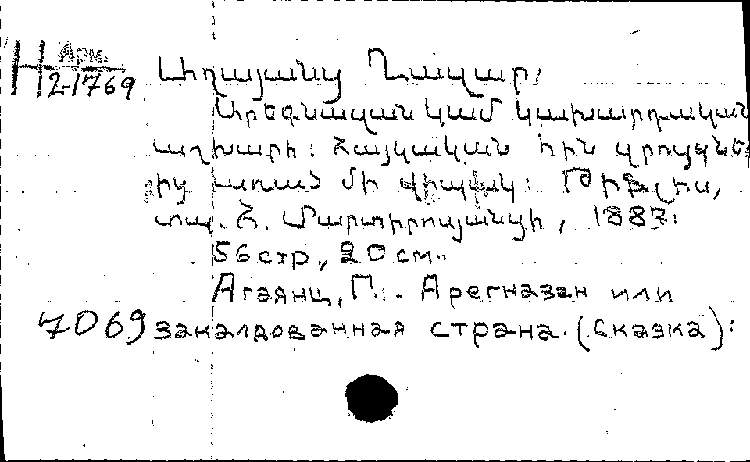 Арм.
H 2-1769
Աղայանց Ղազար,
Արեգնազան կամ կախարդական
աշխարհ: Հայկական հին զրույցնե
րից առած մի վիպակ: Թիֆլիս,
տպ. Հ. Մարտիրոսյանցի, 1887:
56 стр., 20 см.
Агаянц, Г.. Арегназан или
7069 заколдованная страна. (Сказка):